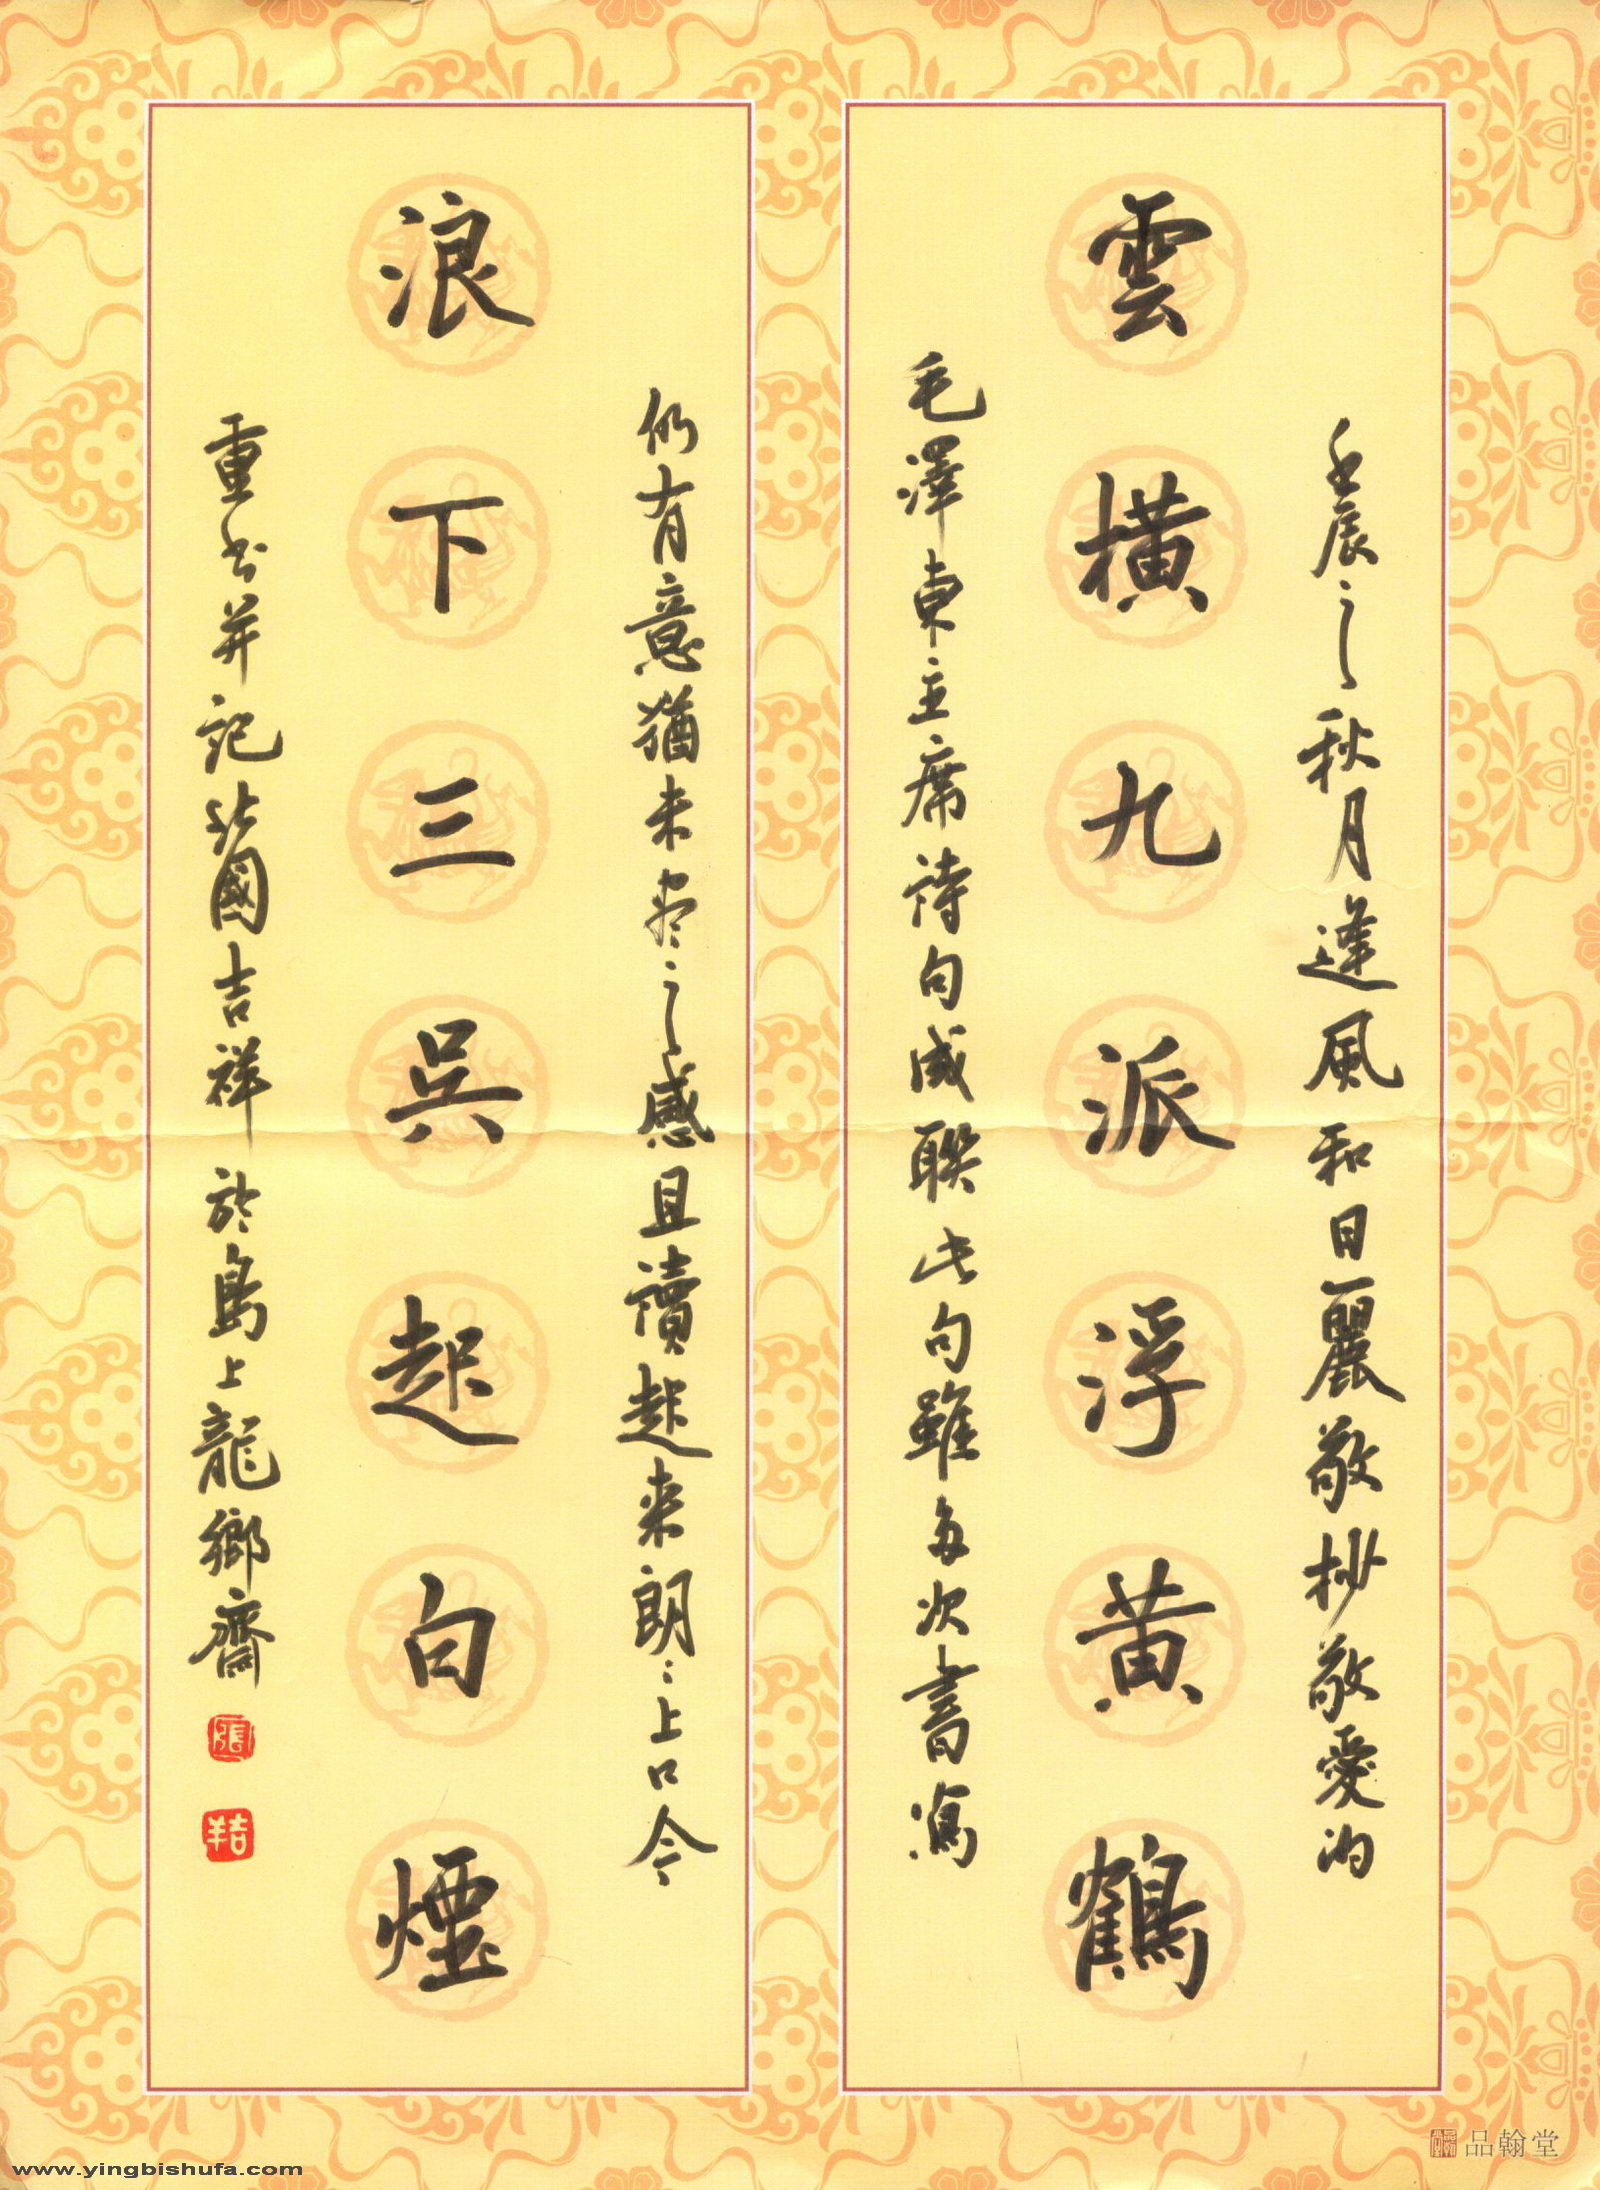 壬辰之秋月逢風和日麗敬抄敬愛的
雲橫九派浮黃鶴
毛澤東主席詩句成聯此句雖每次書寫
仍有意猶未尽之感且讀起来朗〻上口今
浪下三吳起白煙
重书并記北國吉祥於島上龍鄉齋
張
吉羊
品翰堂
www.yingbishufa.com